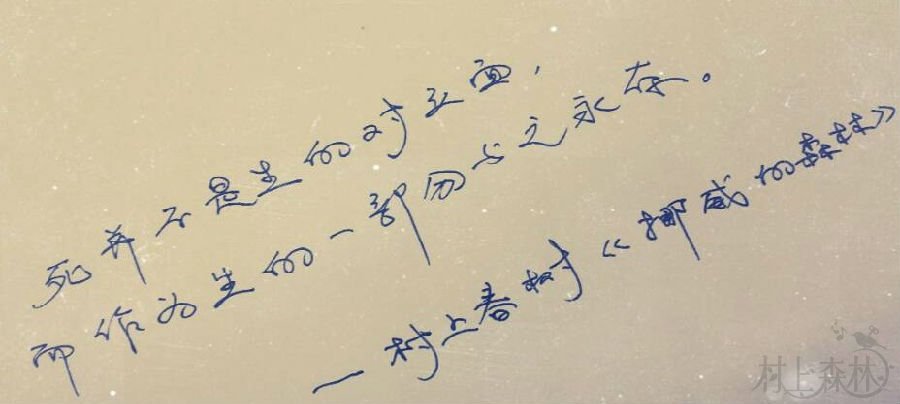 死并不是生的对立面，
而作为生的一部分与之永存。
—村上春树《挪威的森林》
村上森林